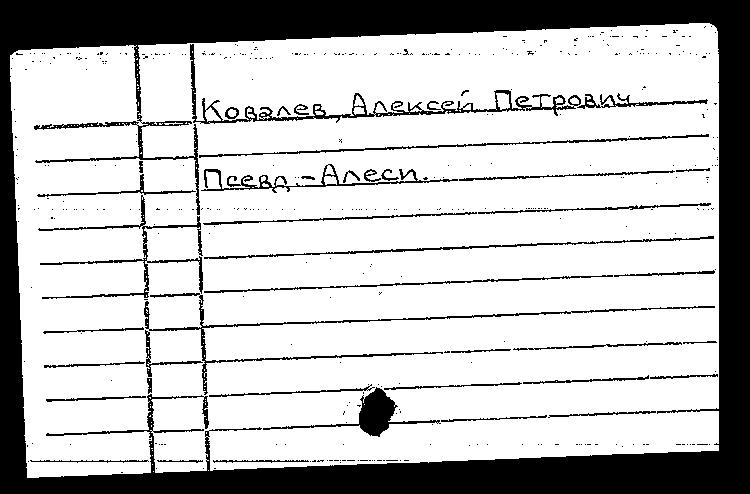 Ковалев, Алексей Петрович
Псевд.-Алеси.